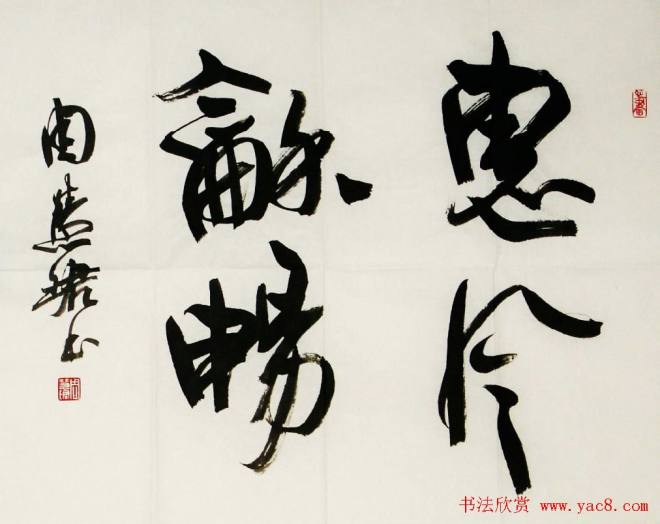 惠风
龢暢
周慧珺书
书法欣赏 www.yac8.com